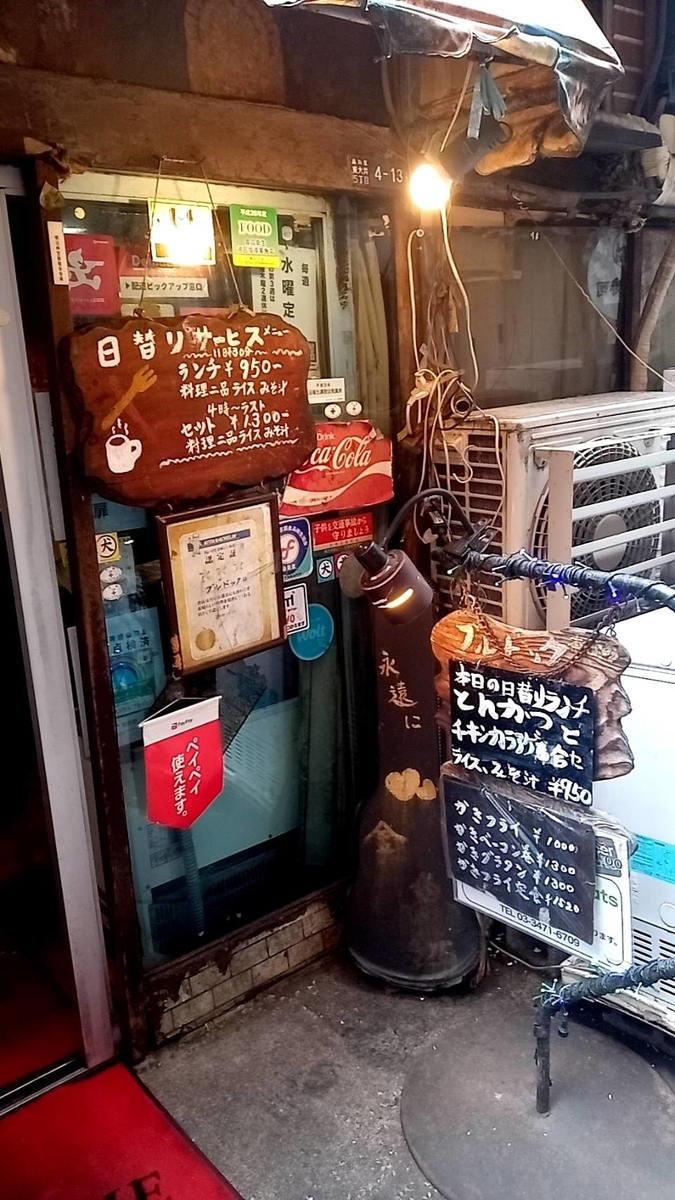 品川区
東大井
5丁目
4-13
平成26年度
FOOD
毎週
水曜定
▶配達ピックアップ窓口
日替りサービスメニュー
11時30分
ランチ ¥950-
料理二品ライスみそ汁
4時〜ラスト
セット ¥1.300-
料理二品ライスみそ汁
Drink
Coca-Cola
子供を交通事故から
守りましょう
犬
犬
認定証
ブルドック
Wolt
点検済
PayPay
ペイペイ
使えます。
永遠に
ブルドック
本日の日替りランチ
とんかつと
チキンカラアゲ盛合せ
ライス、みそ汁 ¥950
かきフライ ¥1000
かきベーコン巻 ¥1300
かきグラタン ¥1300
かきフライ定食 ¥1520
TEL 03-3471-6709